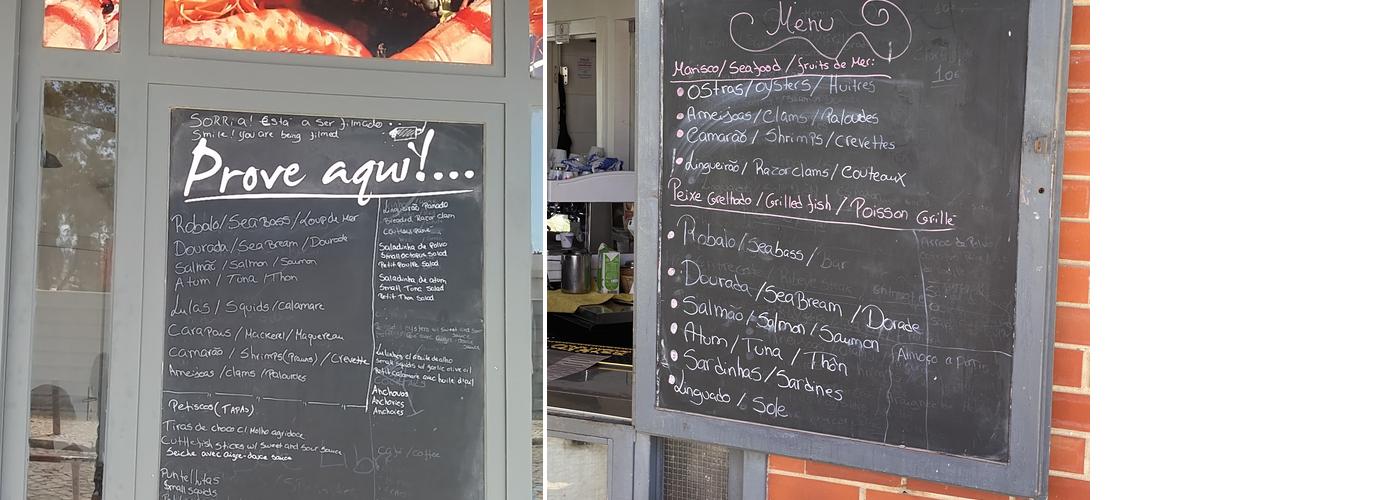 SORRia! Está a ser filmado
Smile! you are being filmed
Prove aqui!...
Robalo/Sea Bass/Loup de Mer
Dourada/Sea Bream/Dourade
Salmão/Salmon/Saumon
Atum/Tuna/Thon
Lulas/Squids/Calamare
Carapaus/Mackerel/Maquereau
Camarão/Shrimps(Prawns)/Crevette
Ameijoas/Clams/Palourdes
Petisco(TAPAS)
Tiras de choco c/ Molho agridoce
Cuttlefish sticks w/ sweet and sour sauce
Seiche avec aigre-douce sauce
Small squids
Lingueirão Panado
Breaded Razor clam
Saladinha de Polvo
Small octopus Salad
Petit Poulpe Salad
Saladinha de atum
Small Tuna Salad
Petit Thon Salad
Small squids w/ garlic olive oil
Petit calamare avec huile d'ail
Anchovas
Anchovies
Anchoies
Café/coffee
Menu
Marisco/Seafood/fruits de Mer:
Ostras/Oysters/Huitres
Ameijoas/Clams/Paloudes
Camarão/Shrimps/Crevettes
Lingueirão/Razor clams/Couteaux
Peixe Grelhado/Grilled fish/Poisson Grille
Robalo/Seabass/bar
Dourada/Sea Bream/Dorade
Salmão/Salmon/Saumon
Atum/Tuna/Thôn
Sardinhas/Sardines
Linguado/Sole
10€
Almoço a partir